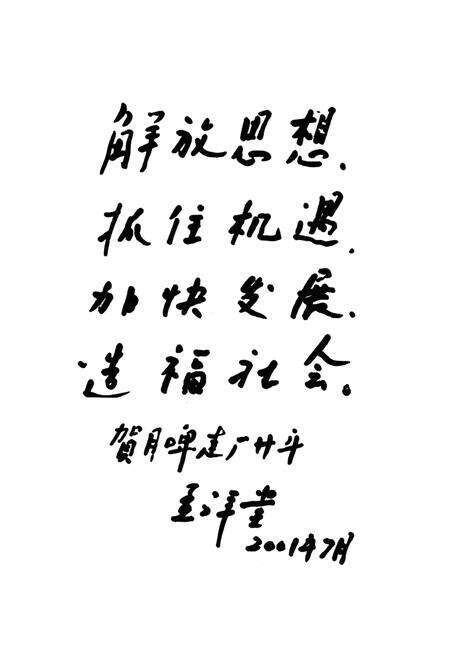 解放思想、
抓住机遇、
加快发展、
造福社会。
贺月啤建厂廿年
2001年7月